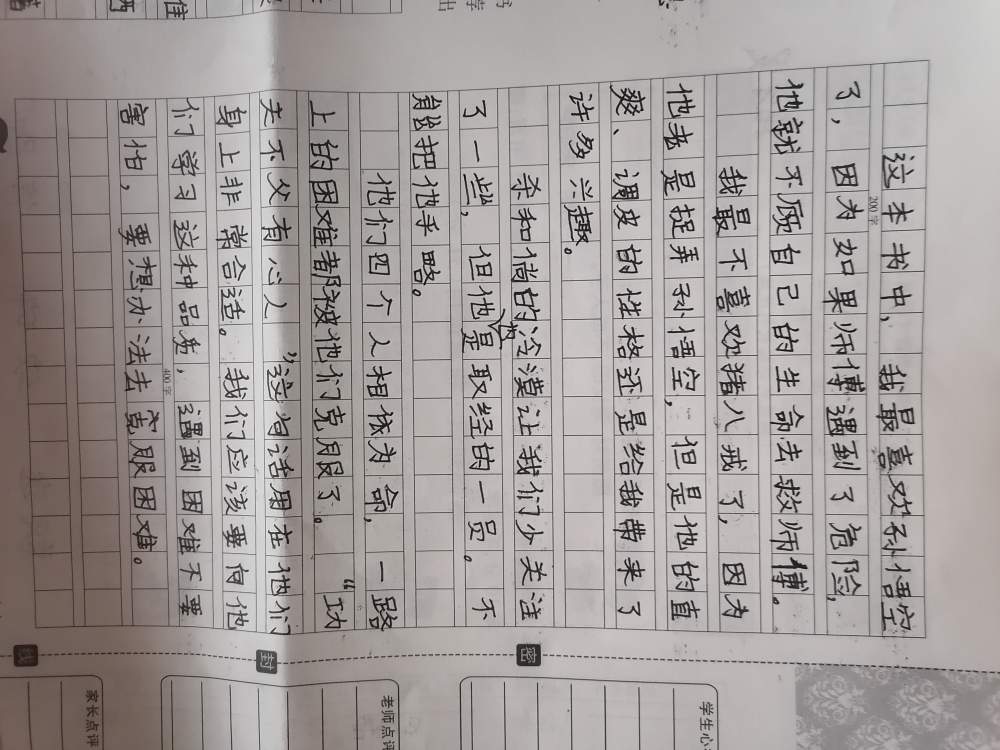 这本书中，我最喜欢孙悟空
200字
了，因为如果师傅遇到了危险，
他就不顾自己的生命去救师傅。
我最不喜欢猪八戒了，因为
他老是捉弄孙悟空，但是他的直
爽、调皮的性格还是给我带来了
许多兴趣。
杀和倘的冷漠让我们少关注
了一些，但他也是取经的一员。不
能把他乎略。
他们四个人相依为命，一路
上的困难都被他们克服了。“功
夫不父有心人”这句话用在他们
身上非常合适。我们应该要向他
们学习这种品质，遇到困难不要
400字
害怕，要想办法去克服困难。
密
封
线
学生心
老师点评
家长点评